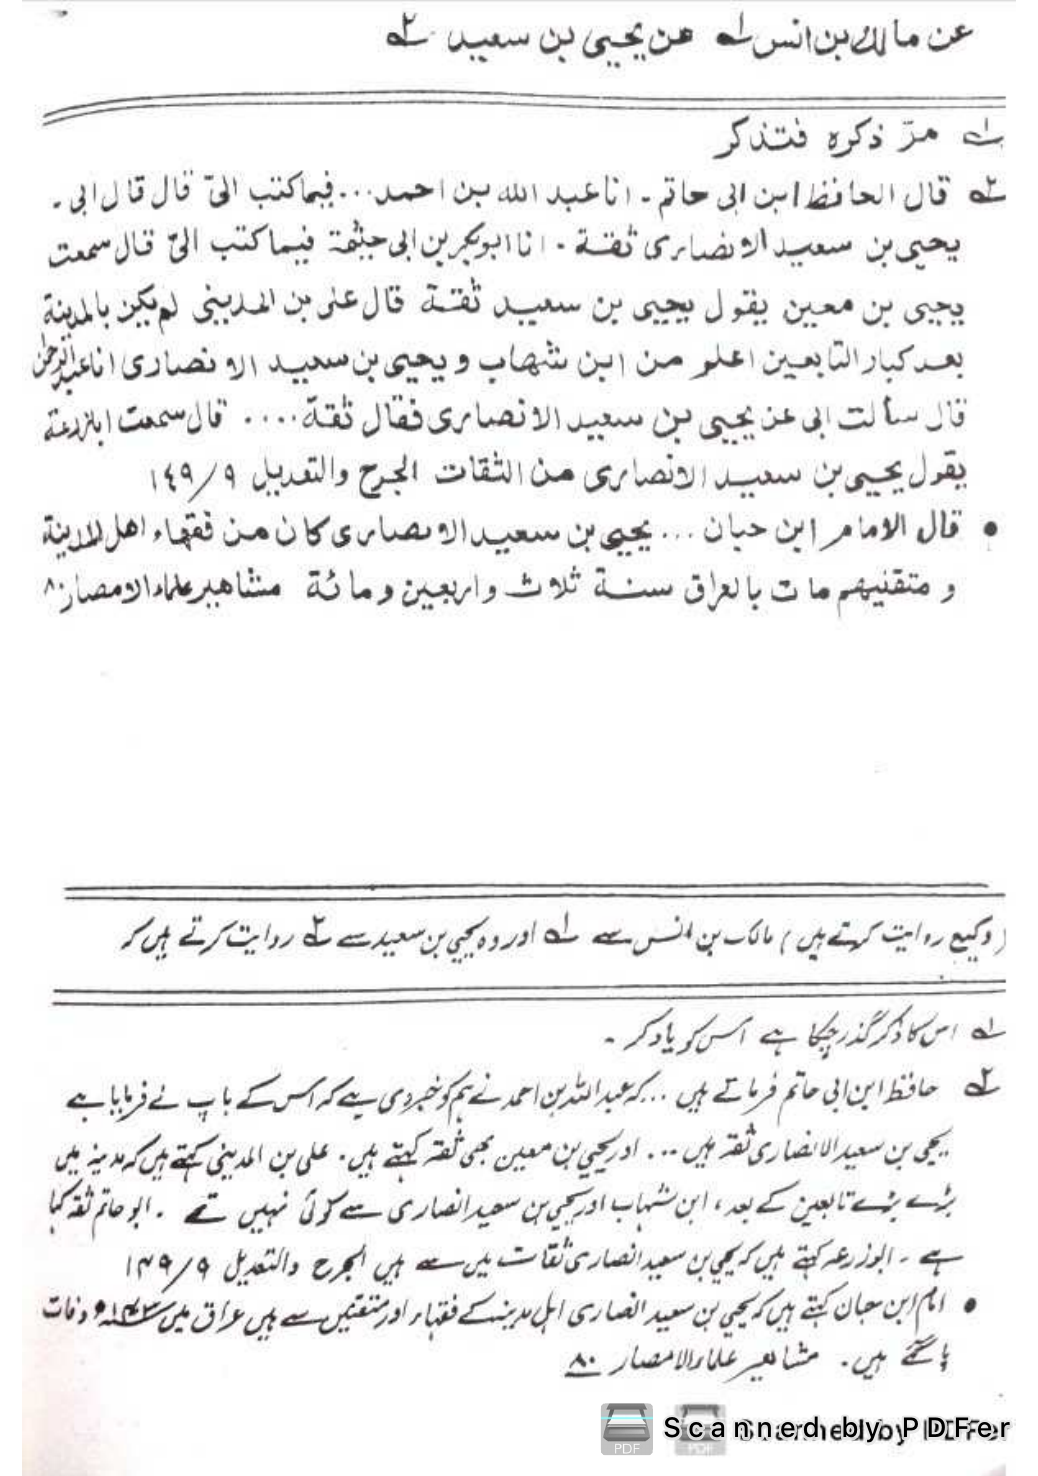 عن مالك بن انس ١ه عن يحيى بن سعيد ٢ه
١ه مرّ ذكره فتذكر
٢ه قال الحافظ ابن ابى حاتم۔ انا عبد الله بن احمد... فيما كتب الىّ قال قال ابى۔
يحيى بن سعيد الانصارى ثقة۔ انا ابوبكر بن ابى خيثمة فيما كتب الىّ قال سمعت
يحيى بن معين يقول يحيى بن سعيد ثقة قال على بن المدينى لم يكن بالمدينة
بعد كبار التابعين اعلم من ابن شهاب و يحيى بن سعيد الانصارى انا عبد الرحمٰن
قال سألت ابى عن يحيى بن سعيد الانصارى فقال ثقة.... قال سمعت ابازرعة
يقول يحيى بن سعيد الانصارى من الثقات الجرح والتعديل ٩/١٤٩
• قال الامام ابن حبان... يحيى بن سعيد الانصارى كان من فقهاء اهل المدينة
و متقنيهم مات بالعراق سنة ثلاث واربعين ومائة مشاهير علماء الامصار ٨٠
(وکیع روایت کرتے ہیں) مالک بن انس سے ١ه اور وہ یحیی بن سعید سے ٢ه روایت کرتے ہیں کہ
١ه اس کا ذکر گذر چکا ہے اس کو یاد کر۔
٢ه حافظ ابن ابی حاتم فرماتے ہیں... کہ عبد اللہ بن احمد نے ہم کو خبر دی ہے کہ اس کے باپ نے فرمایا ہے
یحیی بن سعید الانصاری ثقہ ہیں... اور یحیی بن معین بھی ثقہ کہتے ہیں۔ علی بن المدینی کہتے ہیں کہ مدینہ میں
بڑے بڑے تابعین کے بعد، ابن شہاب اور یحیی بن سعید انصاری سے کوئی نہیں تھے۔ ابو حاتم ثقہ کہا
ہے۔ ابوزرعہ کہتے ہیں کہ یحیی بن سعید انصاری ثقات میں سے ہیں الجرح والتعدیل ٩/١٤٩
• امام ابن حبان کہتے ہیں کہ یحیی بن سعید انصاری اہل مدینہ کے فقہاء اور متقنین سے ہیں عراق میں ١٤٣ھ وفات
پا گئے ہیں۔ مشاہیر علماء الامصار ٨٠
Scanned by PDFer